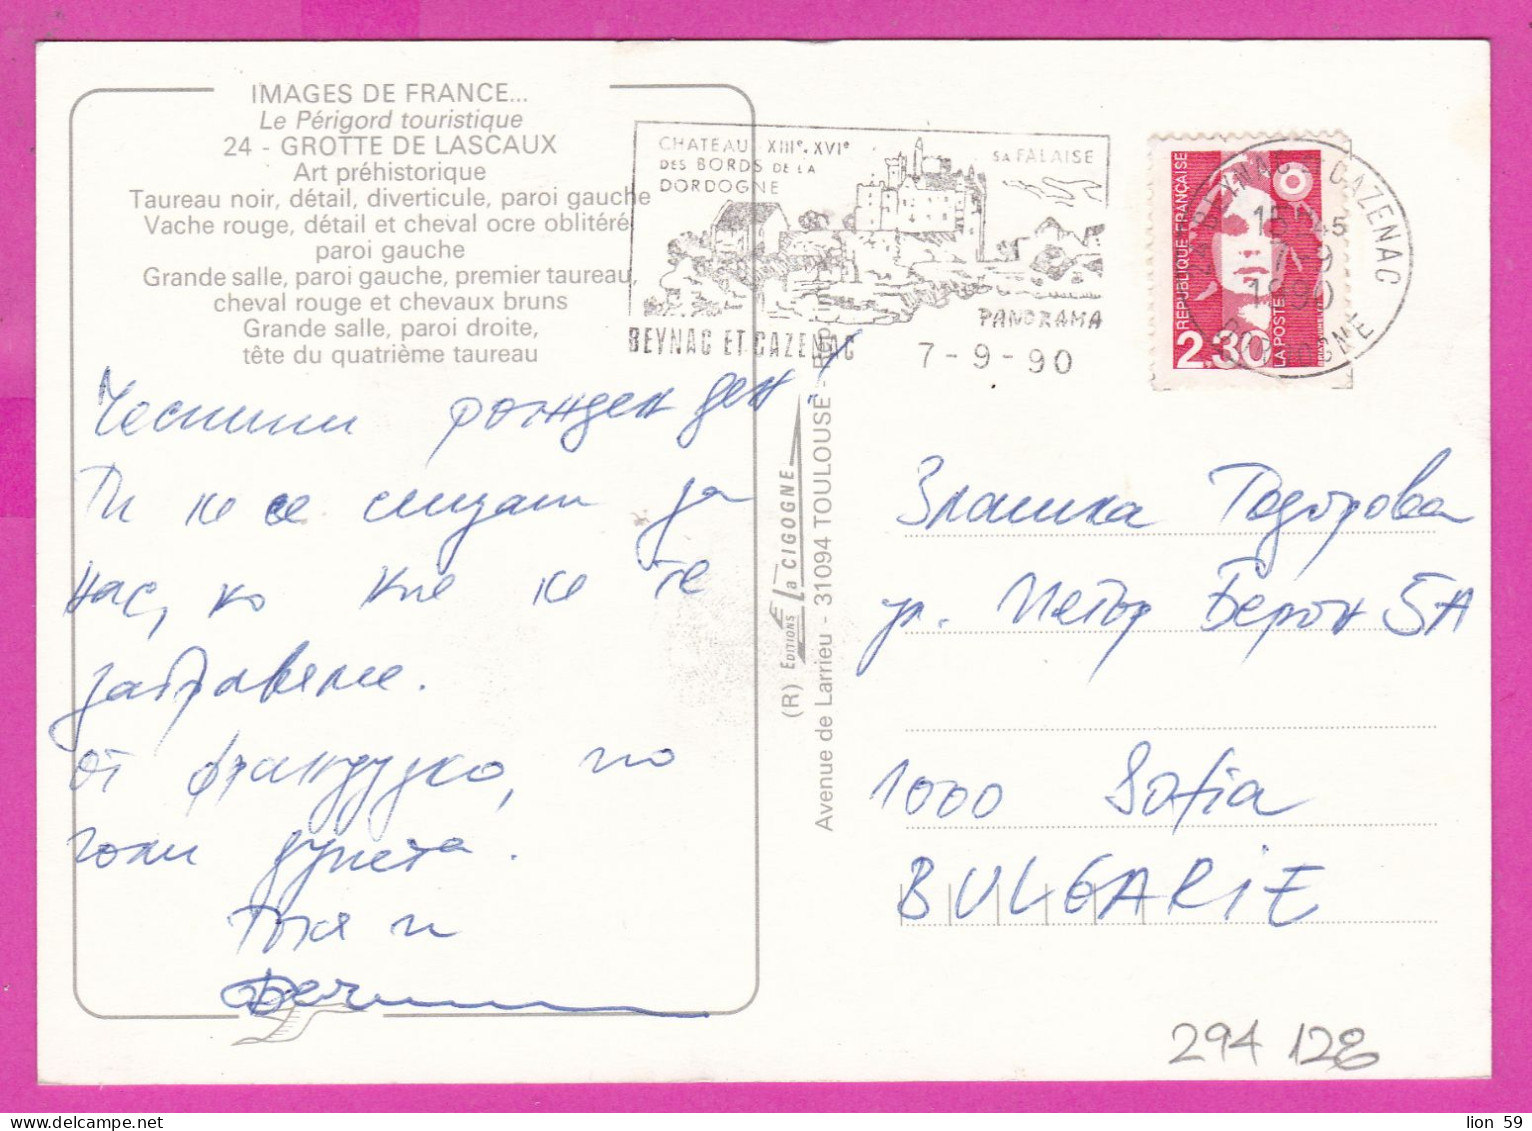 IMAGES DE FRANCE...
Le Périgord touristique
24 - GROTTE DE LASCAUX
Art préhistorique
Taureau noir, détail, diverticule, paroi gauche
Vache rouge, détail et cheval ocre oblitéré,
paroi gauche
Grande salle, paroi gauche, premier taureau,
cheval rouge et chevaux bruns
Grande salle, paroi droite,
tête du quatrième taureau
Честит рожден ден!
Ти не се сещаш за
нас, но ние не те
забравяме.
от французко, по
голи дупета.
Таня и
CHATEAU XIIIe.XVIe
DES BORDS DE LA
DORDOGNE
SA FALAISE
PANORAMA
BEYNAC ET CAZENAC
7-9-90
RÉPUBLIQUE FRANÇAISE
2,30
LA POSTE
BEYNAC ET CAZENAC
12H45
7-9
1990
DORDOGNE
(R) EDITIONS La CIGOGNE
Avenue de Larrieu - 31094 TOULOUSE -
Златка Тодорова
ул. Петър Берон 5А
1000 Sofia
BULGARIE
294 128
lion 59